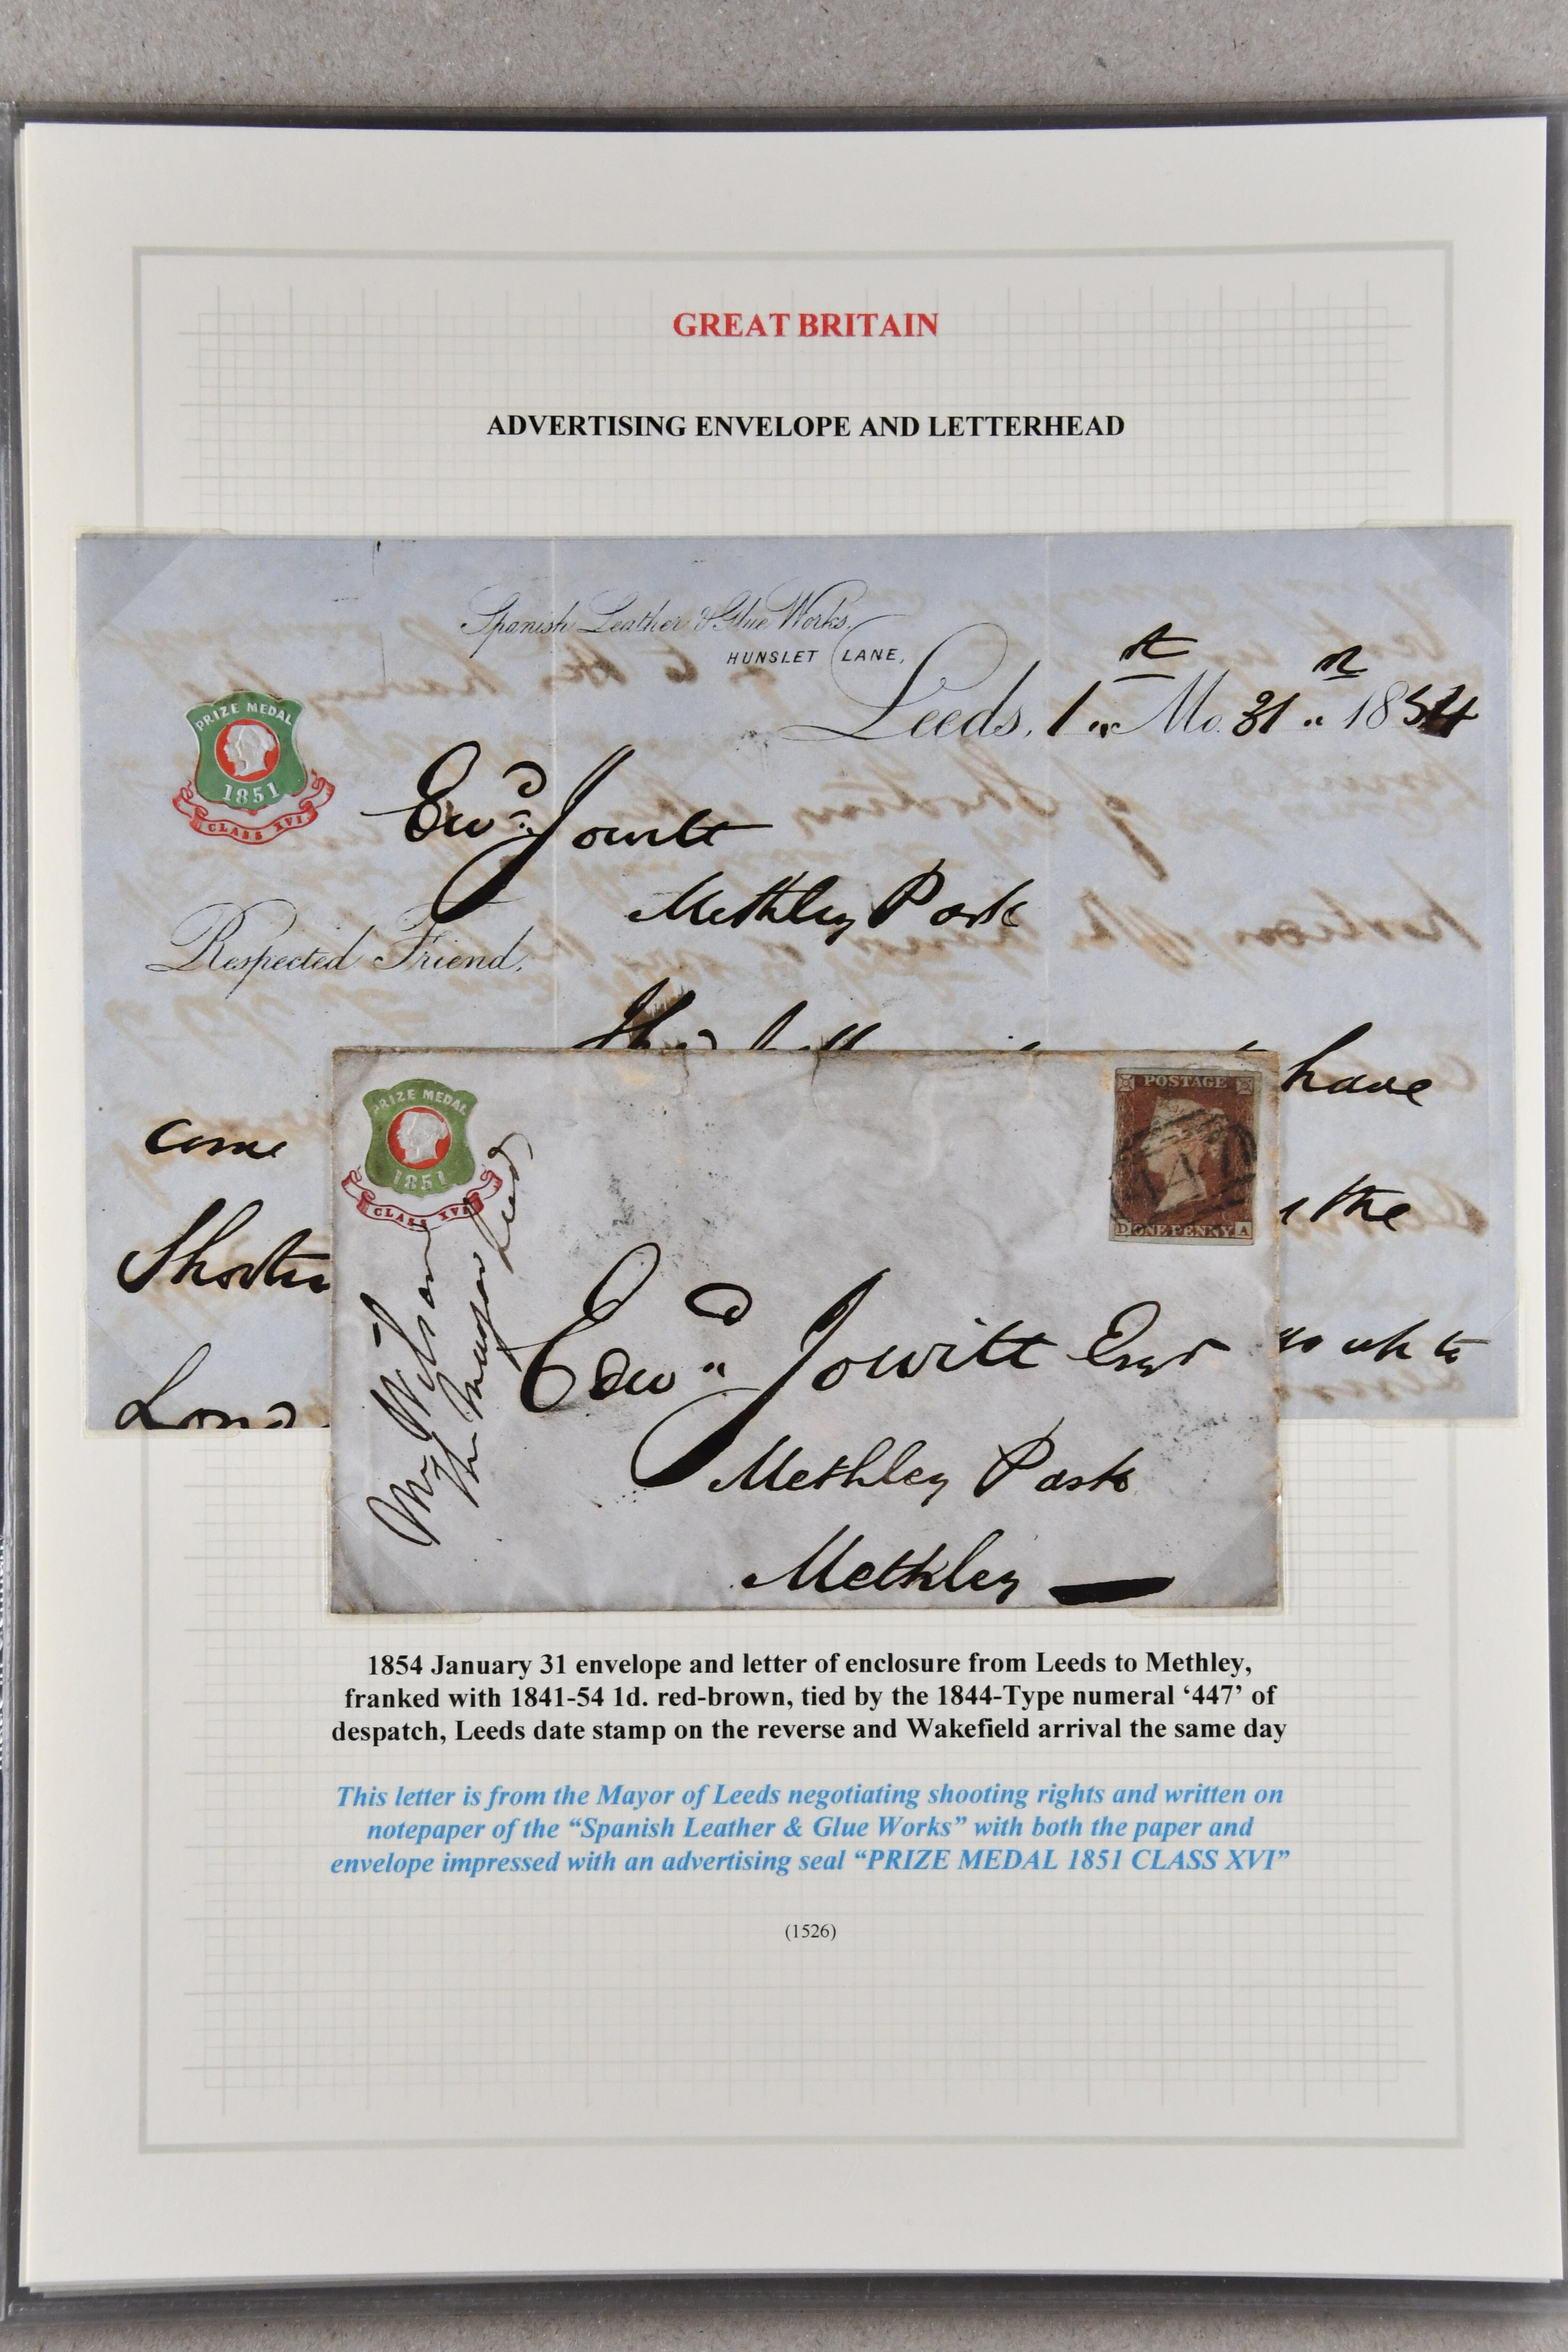 GREAT BRITAIN
ADVERTISING ENVELOPE AND LETTERHEAD
Spanish Leather & Glue Works,
HUNSLET LANE,
Leeds, 1st Mo. 31st 1854
PRIZE MEDAL
1851
CLASS XVI
Edwd. Jowitt
Methley Park
Respected Friend,
have
come
the
London
up to
PRIZE MEDAL
1851
CLASS XVI
POSTAGE
D ONE PENNY A
Mr Wilson
the Mayor Leeds
Edwd. Jowitt Esqr
Methley Park
Methley
1854 January 31 envelope and letter of enclosure from Leeds to Methley,
franked with 1841-54 1d. red-brown, tied by the 1844-Type numeral ‘447’ of
despatch, Leeds date stamp on the reverse and Wakefield arrival the same day
This letter is from the Mayor of Leeds negotiating shooting rights and written on
notepaper of the “Spanish Leather & Glue Works” with both the paper and
envelope impressed with an advertising seal “PRIZE MEDAL 1851 CLASS XVI”
(1526)